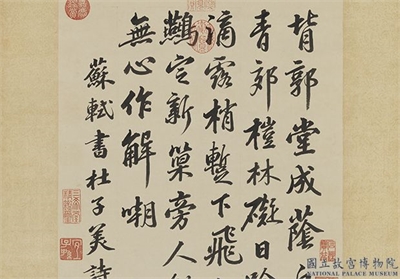 背郭堂成蔭
青郊榿林礙日吟
滴露梢蹔下飛
鷰定新巢旁人
無心作解嘲
蘇軾書杜子美詩
國立故宮博物院
NATIONAL PALACE MUSEUM